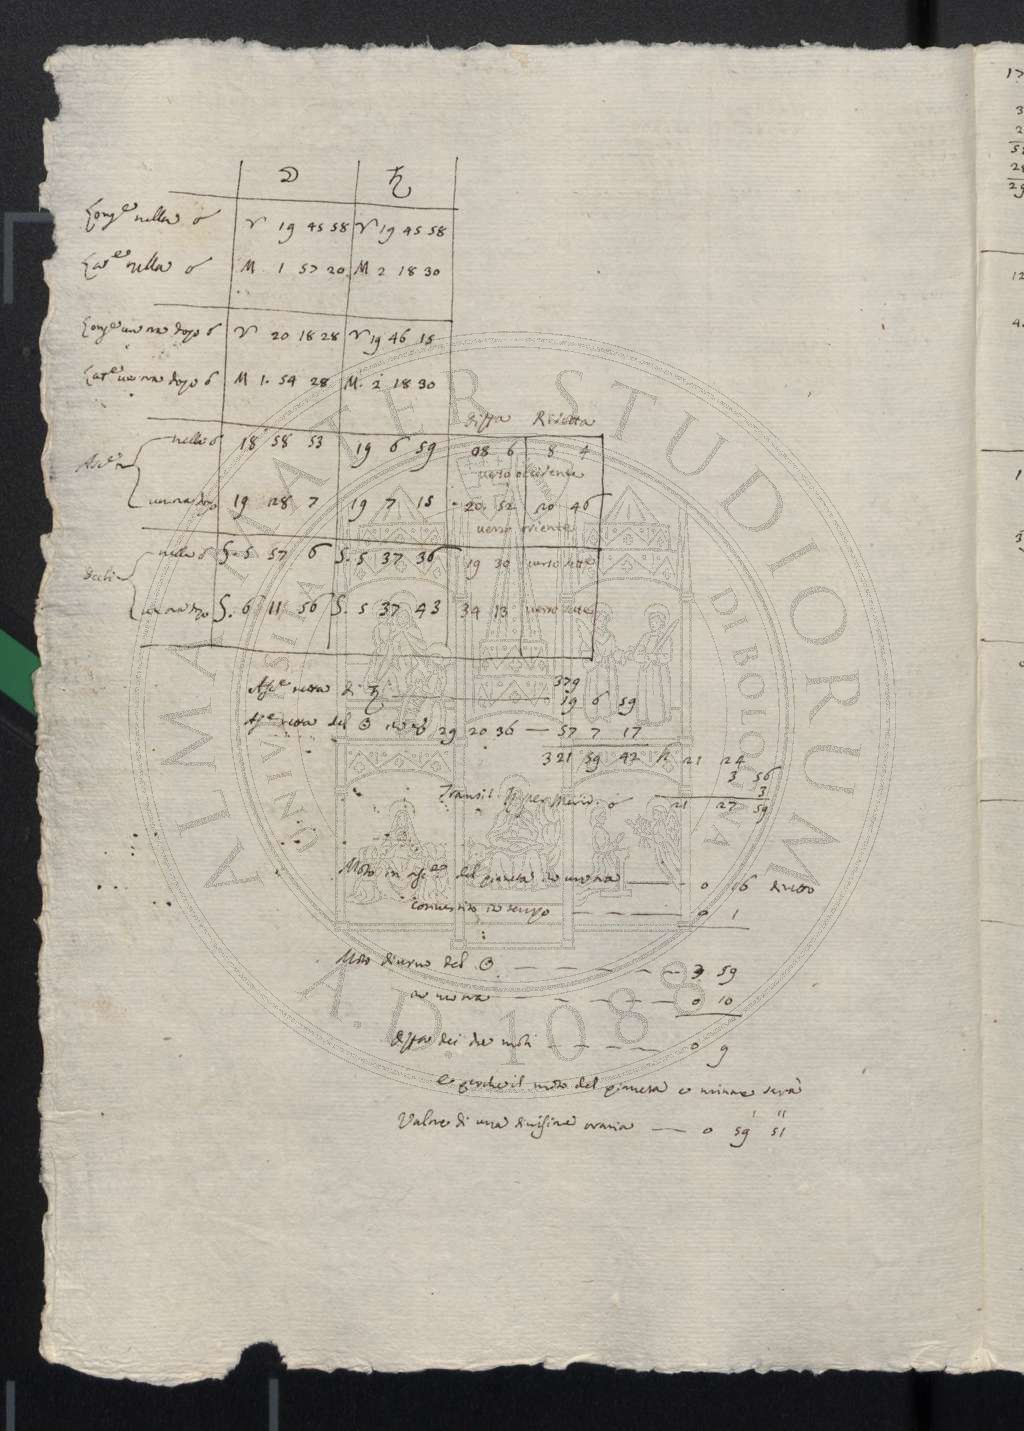 ☽ ♄
Long.e nella ☌ ♈ 19 45 58 ♈ 19 45 58
Lat.e nella ☌ M 1 57 20 M 2 18 30
Long.e un ora dopo ☌ ♈ 20 18 28 ♈ 19 46 15
Lat.e un ora dopo ☌ M 1. 54 28 M. 2 18 30
diffa Ridotta
nella ☌ 18 58 53 19 6 59 08 6 8 4
verso occidente
un ora dopo 19 28 7 19 7 15 20. 52 20 46
verso oriente
nella ☌ S. 5 57 6 S. 5 37 36 19 30 verso sett
Decli
un ora dopo S. 6 11 56 S. 5 37 43 34 13 verso sett
379
Asc.e retta di ♄ 19 6 59
Asc.e retta del ☉ in 29 20 36 — 57 7 17
321 59 42 h 21 24
3 56
3
Transit. ♄ per merid. 21 27 59
Moto in asc.e del pianeta in un ora — 0 16 diretto
convertito in tempo — 0 1
Moto diurno del ☉ — 3 59
in un ora — 0 10
diffa dei due moti — 0 9
e perche il moto del pianeta e minore sarà
Valore di una divisione oraria — 0 59 51
ALMA MATER STUDIORUM
UNIVERSITÀ DI BOLOGNA
A.D. 1088